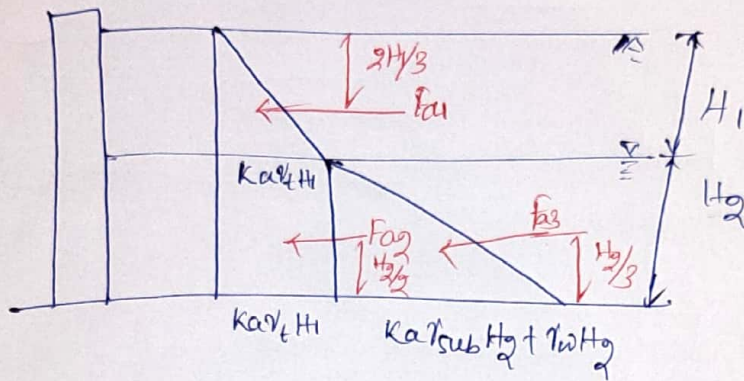 2H/3
Fa1
H1
Kaγt H1
H2
Fa2
H2/2
Fa3
H2/3
Kaγt H1
Kaγsub H2 + γw H2